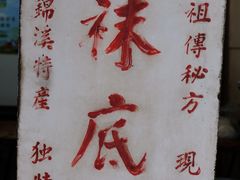 祖傳秘方 現
袜底
錦溪特產 独特